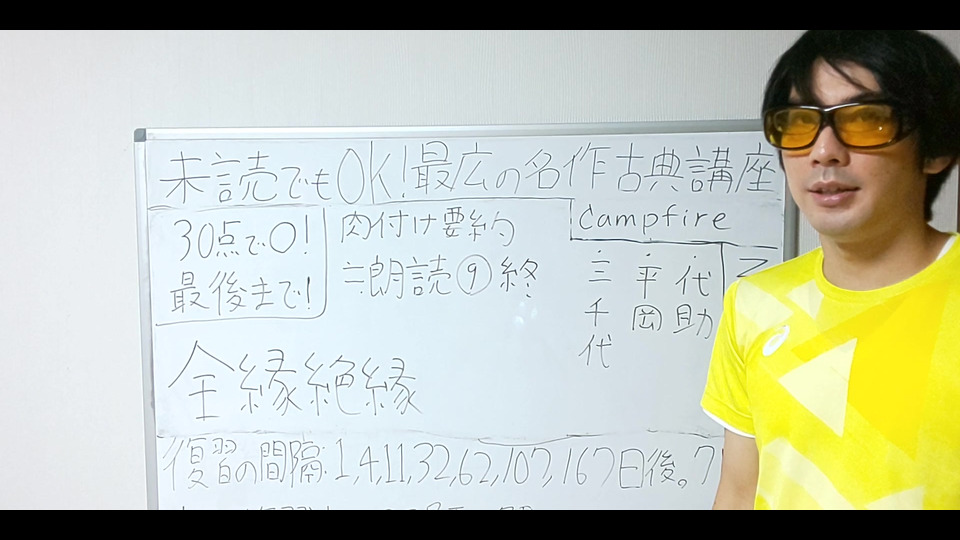 未読でもOK!最広の名作古典講座
30点で〇!
最後まで!
肉付け要約
≒朗読⑨終
Campfire
・代助
・平岡
・三千代
全縁絶縁
復習の間隔:1,4,11,32,62,107,167日後。